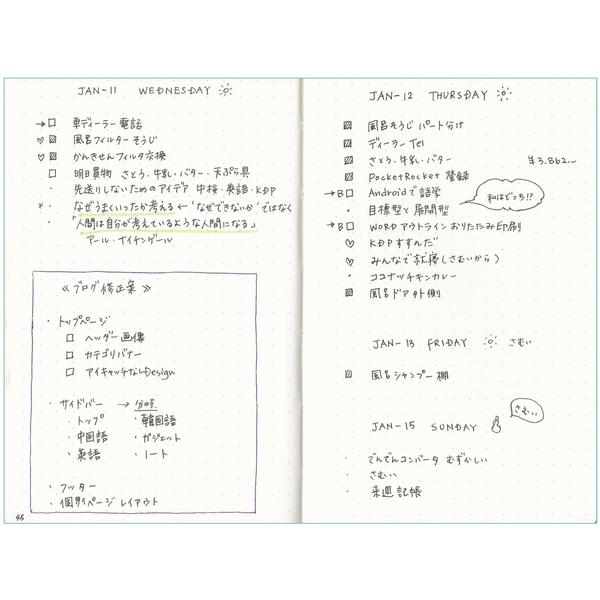 JAN-11 WEDNESDAY
→□ 車ディーラー電話
♡☒ 風呂フィルターそうじ
♡☒ かんきせんフィルタ交換
□ 明日買物 さとう・牛乳・バター・天ぷら具
・ 先送りしないためのアイデア 中検・英語・KDP
* ・ なぜうまくいったか考える ← 'なぜできないか'ではなく
・ 「人間は自分が考えているような人間になる」
アール・ナイチンゲール
《ブログ修正案》
・ トップページ
□ ヘッダー画像
□ カテゴリバナー
□ アイキャッチなしDesign
・ サイドバー → 分ける
・トップ ・韓国語
・中国語 ・ガジェット
・英語 ・ノート
・ フッター
・ 個別ページ レイアウト
45
JAN-12 THURSDAY
☒ 風呂そうじ パート分け
☒ ディーラー Tel
☒ さとう・牛乳・バター ¥3,862
☒ PocketRocket 登録
→B□ Androidで語学
私はどっち!?
・ 目標型と展開型
→B□ WORDアウトライン おりたたみ印刷
♡ KDPすすんだ
♡ みんなで就寝(さむいから)
・ ココナツチキンカレー
☒ 風呂ドア外側
JAN-13 FRIDAY さむい
☒ 風呂シャンプー棚
JAN-15 SUNDAY さむい
・ でんでんコンバータ むずかしい
・ さむい
・ 来週記帳